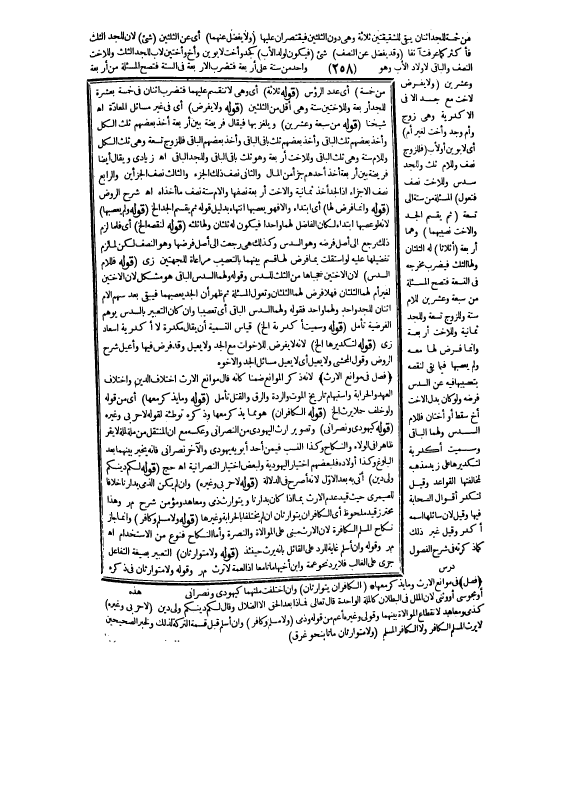 من خمسة للجد اثنان يبقى للشقيقتين ثلاثة وهى دون الثلثين فيقتصران عليها (ولا يفضل عنهما) أى عن الثلثين (شئ) لان للجد الثلث
فأكثر كما عرفت آنفا (وقد يفضل عن النصف) شئ (فيكون لولد الأب) كجد وأخت لابوين وأخ وأختين لاب للجد الثلث وللاخت
النصف والباقى لاولاد الأب وهو (٢٥٨) واحد من ستة على أربعة فتضرب الاربعة فى الستة فتصح المسئلة من أربعة
وعشرين (ولا يفرض
لاخت مع جد الا فى
الاكدرية وهى زوج
وأم وجد وأخت لغير أم)
أى لابوين أولأب (فللزوج
نصف وللام ثلث وللجد
سدس وللاخت نصف
فتعول) المسئلة من ستة الى
تسعة (ثم يقسم الجد
والاخت نصيبهما) وهما
أربعة (أثلاثا) له الثلثان
ولها الثلث فيضرب مخرجه
فى التسعة فتصح المسئلة
من سبعة وعشرين للام
ستة وللزوج تسعة وللجد
ثمانية وللاخت أربعة
وانما فرض لها معه
ولم يعصبها فيما بقى لنقصه
بتعصيبها فيه عن السدس
فرضه ولو كان بدل الاخت
أخ سقط أو أختان فللام
السدس ولهما الباقى
وسميت أكدرية
لتكديرها على زيد مذهبه
لمخالفتها القواعد وقيل
لتكدر أقوال الصحابة
فيها وقيل لان سائلها اسمه
أكدر وقيل غير ذلك
كما ذكرته فى شرح الفصول
درس
من خمسة) أى عدد الرؤس (قوله ثلاثة) أى وهى لا تنقسم عليهما فتضرب اثنان فى خمسة بعشرة
للجد أربعة وللاختين ستة وهى أقل من الثلثين (قوله ولا يفرض) أى فى غير مسائل المعادّة اه
شيخنا (قوله من سبعة وعشرين) ويلغز بها فيقال فريضة بين أربعة أخذ بعضهم ثلث الكل
وأخذ بعضهم ثلث الباقى وأخذ بعضهم ثلث باقى الباقى وأخذ بعضهم الباقى فللزوج تسعة وهى ثلث الكل
وللام ستة وهى ثلث الباقى وللاخت أربعة وهو ثلث باقى الباقى وللجد الباقى اه زيادى ويقال أيضا
فريضة بين أربعة أخذ أحدهم جزأ من المال والثانى نصف ذلك الجزء والثالث نصف الجزأين والرابع
نصف الاجزاء اذ الجد أخذ ثمانية والاخت أربعة نصفها والام ستة نصف ما أخذاه اه شرح الروض
(قوله وانما فرض لها) أى ابتداء والافهو يعصبها انتهاء بدليل قوله ثم يقسم الجد الخ (قوله ولم يعصبها)
لانه لو عصبها ابتداء لكان الفاضل لهما واحدا فيكون له ثلثان ولها ثلثه (قوله لنقصه الخ) أى فلما لزم
ذلك رجع الى أصل فرضه وهو السدس وكذلك هى رجعت الى أصل فرضها وهو النصف لكن لما لزم
تفضيلها عليه لو استقلت بما فرض لها قسم بينهما بالتعصيب مراعاة للجهتين زى (قوله فللام
السدس) لان الاختين حجباها من الثلث للسدس وقوله ولهما السدس الباقى هو مشكل لان الاختين
لغير أم لهما الثلثان فهلا فرض لهما الثلثان وتعول المسئلة ثم ظهر أن الجد يعصبهما فيبقى بعد سهم الام
اثنان للجد واحد ولهما واحد فقوله ولهما السدس الباقى أى تعصيبا وان كان التعبير بالسدس يوهم
الفرضية تأمل (قوله وسميت أكدرية الخ) قياس التسمية أن يقال مكدرة لا أكدرية اسعاد
زى (قوله لتكديرها الخ) لانه لا يفرض للاخوات مع الجد ولا يعيل وقد فرض فيها وأعيل شرح
الروض وقول المحشى ولا يعيل أى لا يعيل مسائل الجد والاخوه
﴿فصل فى موانع الارث﴾ لانه ذكر الموانع ضمنا كانه قال موانع الارث اختلاف الدين واختلاف
العهد والحرابة واستبهام تاريخ الموت والردة والرق والقتل تأمل (قوله وما يذكر معها) أى من قوله
ولو خلف حملا يرث الخ (قوله الكافران) هو مما يذكر معها وذكره توطئة لقوله لا حربى وغيره
(قوله كيهودى ونصرانى) وتصوير ارث اليهودى من النصرانى وعكسه مع ان المنتقل من ملة لملة لا يقر
ظاهر فى الولاء والنكاح وكذا النسب فيمن أحد أبويه يهودى والآخر نصرانى فانه يخير بينهما بعد
البلوغ وكذا أولاده فلبعضهم اختيار اليهودية ولبعض اختيار النصرانية اه حج (قوله لكم دينكم
ولى دين) أتى به بعد الاوّل لانه أصرح فى الدلالة (قوله لا حربى وغيره) وان لم يكن الذمى بدارنا خلافا
للصيمرى حيث قيد عدم الارث بما اذا كان بدارنا ويتوارث ذمى ومعاهد ومؤمن شرح مر وهذا
محترز قيد ملحوظ أى الكافران يتوارثان ان لم يختلفا بالحرابة وغيرها (قوله ولا مسلم وكافر) وانما جاز
نكاح المسلم الكافرة لان الارث مبنى على الموالاة والنصرة وأما النكاح فنوع من الاستخدام اه
مر وقوله وان أسلم غاية للرد على القائل بانه يرث حينئذ (قوله ولا متوارثان) التعبير بصيغة التفاعل
جرى على الغالب فلا يرد نحو عمة وابن أخيها ماتا معا اذ العمة لا ترث مر وقوله ولا متوارثان فى ذكره
﴿فصل﴾ فى موانع الارث وما يذكر معها (الكافران يتوارثان) وان اختلفت ملتهما كيهودى ونصرانى
أو مجوسى أو وثنى لان الملل فى البطلان كالملة الواحدة قال تعالى فماذا بعد الحق الا الضلال وقال لكم دينكم ولى دين (لا حربى وغيره)
كذمى ومعاهد لانقطاع الموالاة بينهما وقولى وغيره أعم من قوله وذمى (ولا مسلم وكافر) وان أسلم قبل قسمة التركة لذلك ولخبر الصحيحين
لا يرث المسلم الكافر ولا الكافر المسلم (ولا متوارثان ماتا بنحو غرق)
هذه